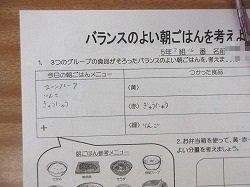 バランスのよい朝ごはんを考えよ
5年 組 番 名前
1. 3つのグループの食品がそろったバランスのよい朝ごはんを考えま
今日の朝ごはんメニュー
つかった食品
コーンスープ
りんご
ぎゅうにゅう
(黄)
(赤) ぎゅうにゅう
(緑) りんご
+
朝ごはん参考メニュー
2. お弁当箱を使って、
よい分量を考えましょう。